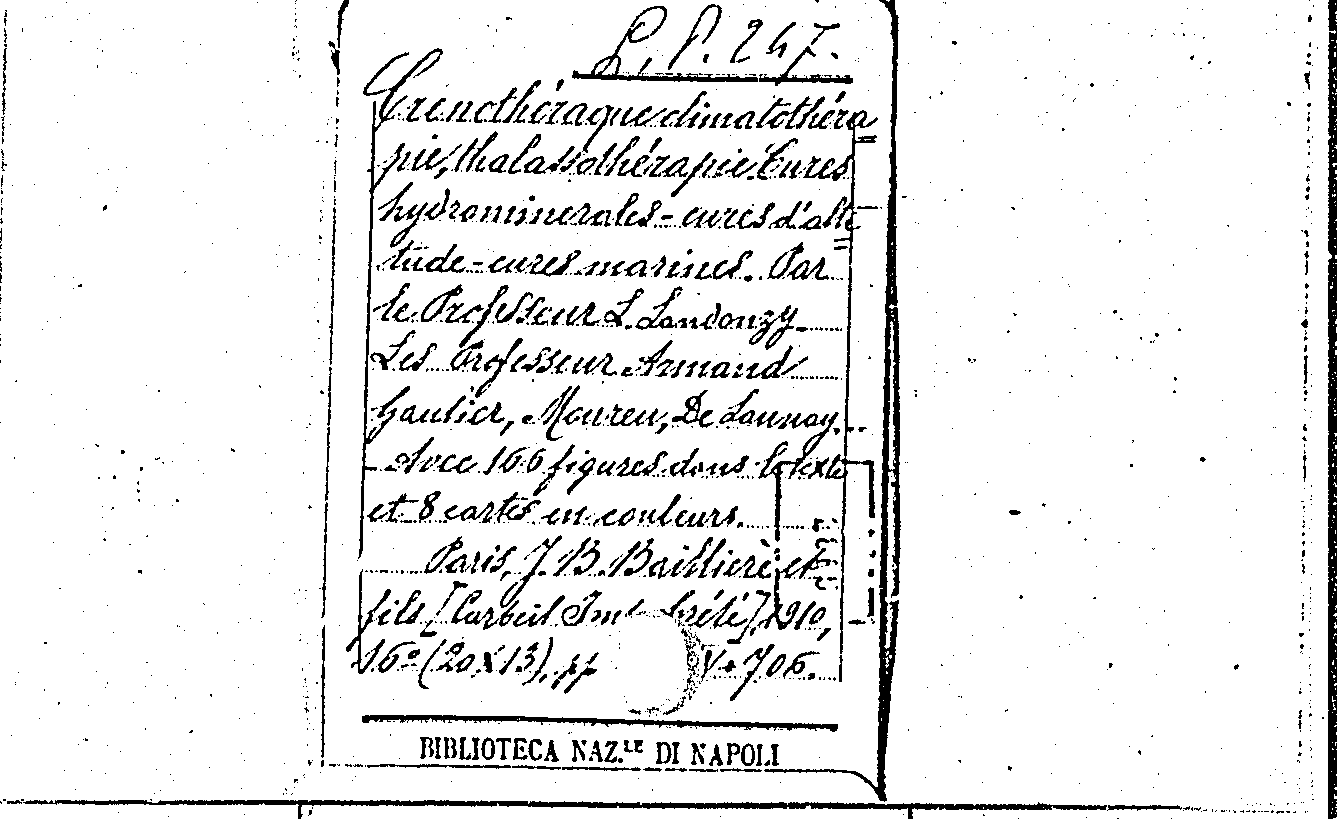 L. P. 247.
Crenothéraque climatothéra
pie, thalassothérapie. Cures
hydrominerales - cures d'alti
tude - cures marines. Par
le Professeur L. Landouzy
Les Professeur Armand
Gautier, Moureu, De Launay...
- Avec 166 figures dans le texte
et 8 cartes en couleurs.
Paris, J. B. Baillierè et
fils [Corbeil Creté], 1910,
16° (20x13), pp V-706.
BIBLIOTECA NAZ.LE DI NAPOLI